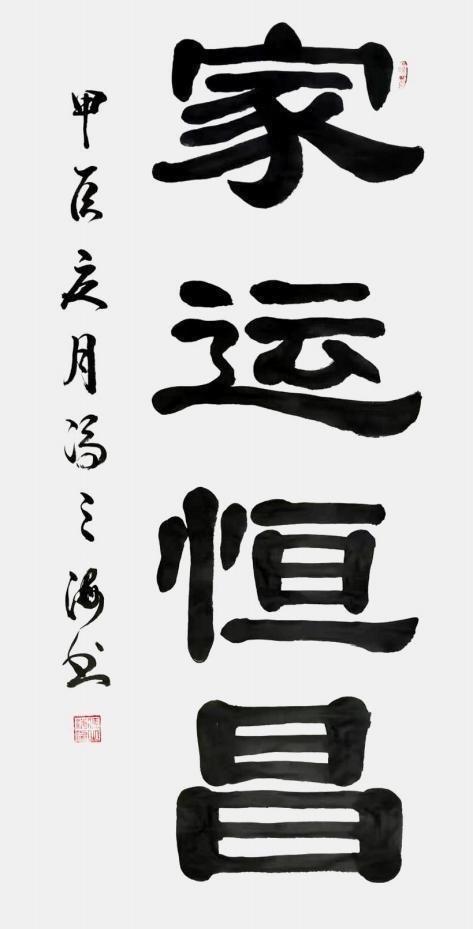 家运恒昌
甲辰亥月冯之海书